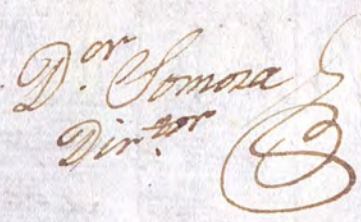 D.ᵒʳ Somoza
Dir.ᵗᵒʳ